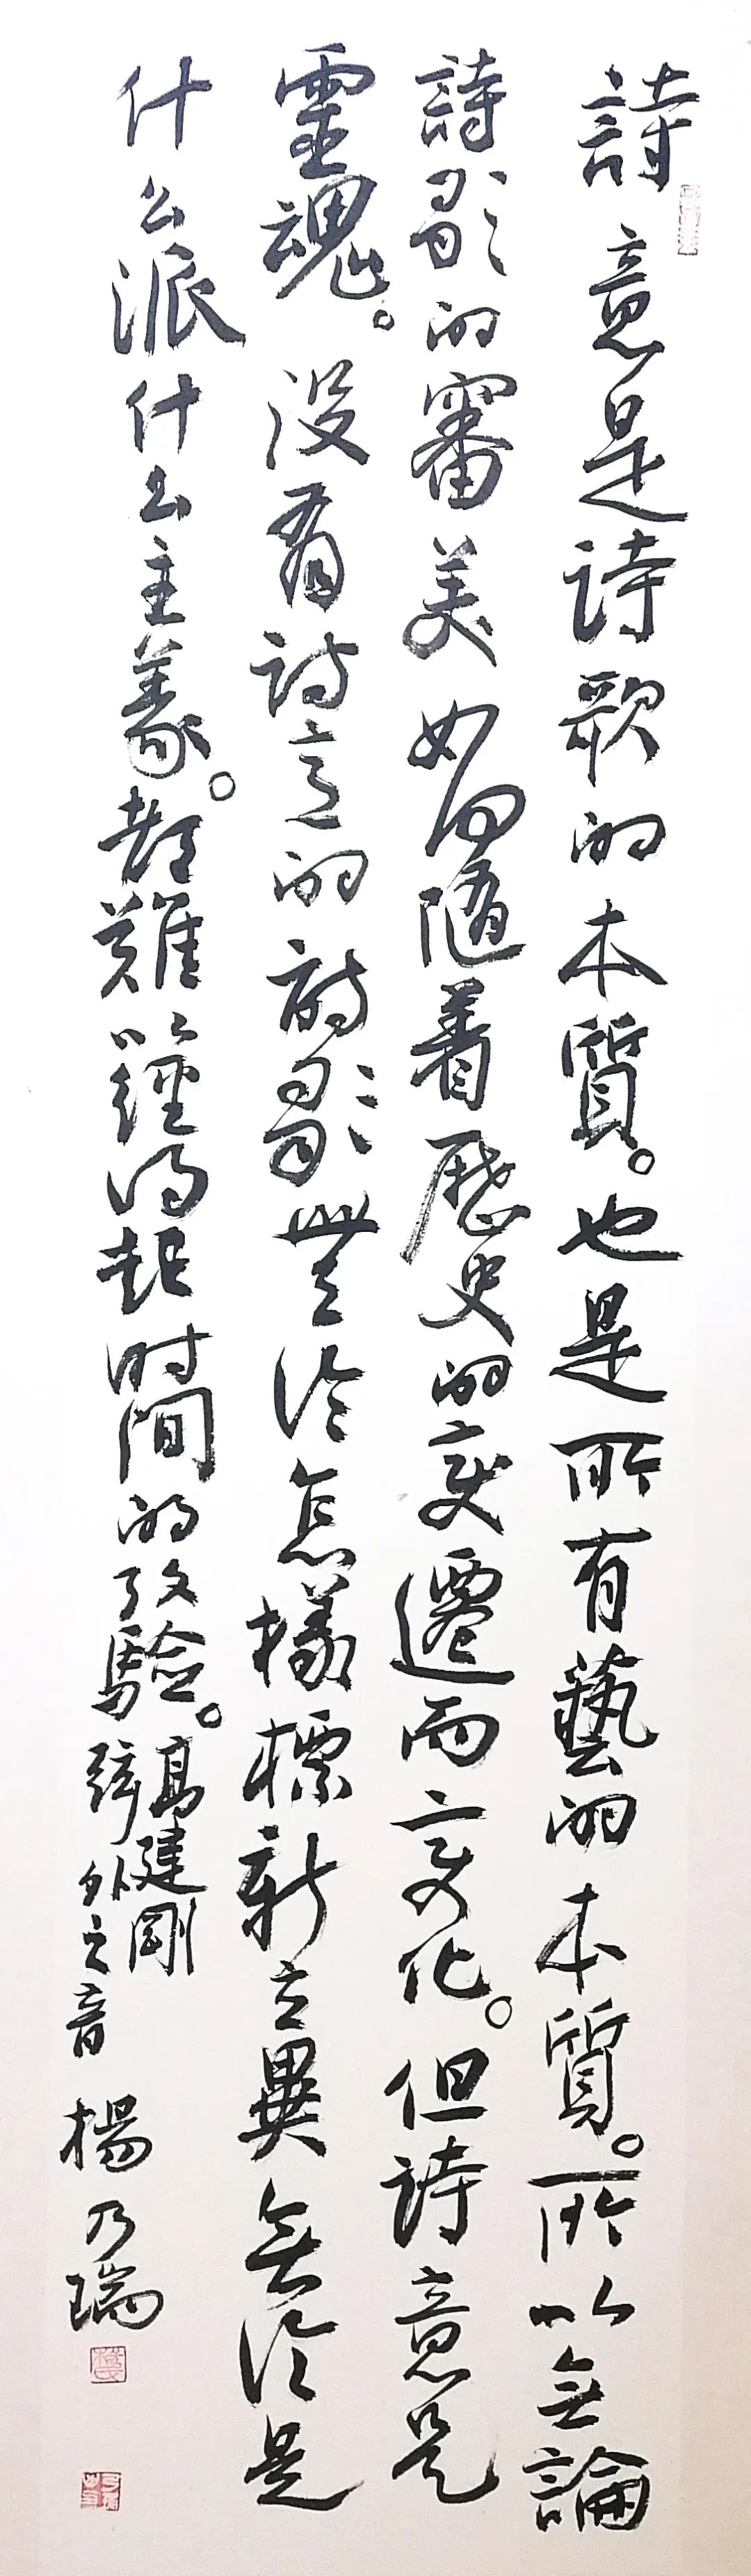 詩意是詩歌的本質。也是所有藝的本質。所以無論
詩歌的審美如何隨着歷史的变遷而变化。但詩意是
靈魂。没有詩意的詩歌無论怎樣標新立異無论是
什么派什么主義。都難以經得起时间的攷驗。
高健剛
弦外之音
楊乃瑞